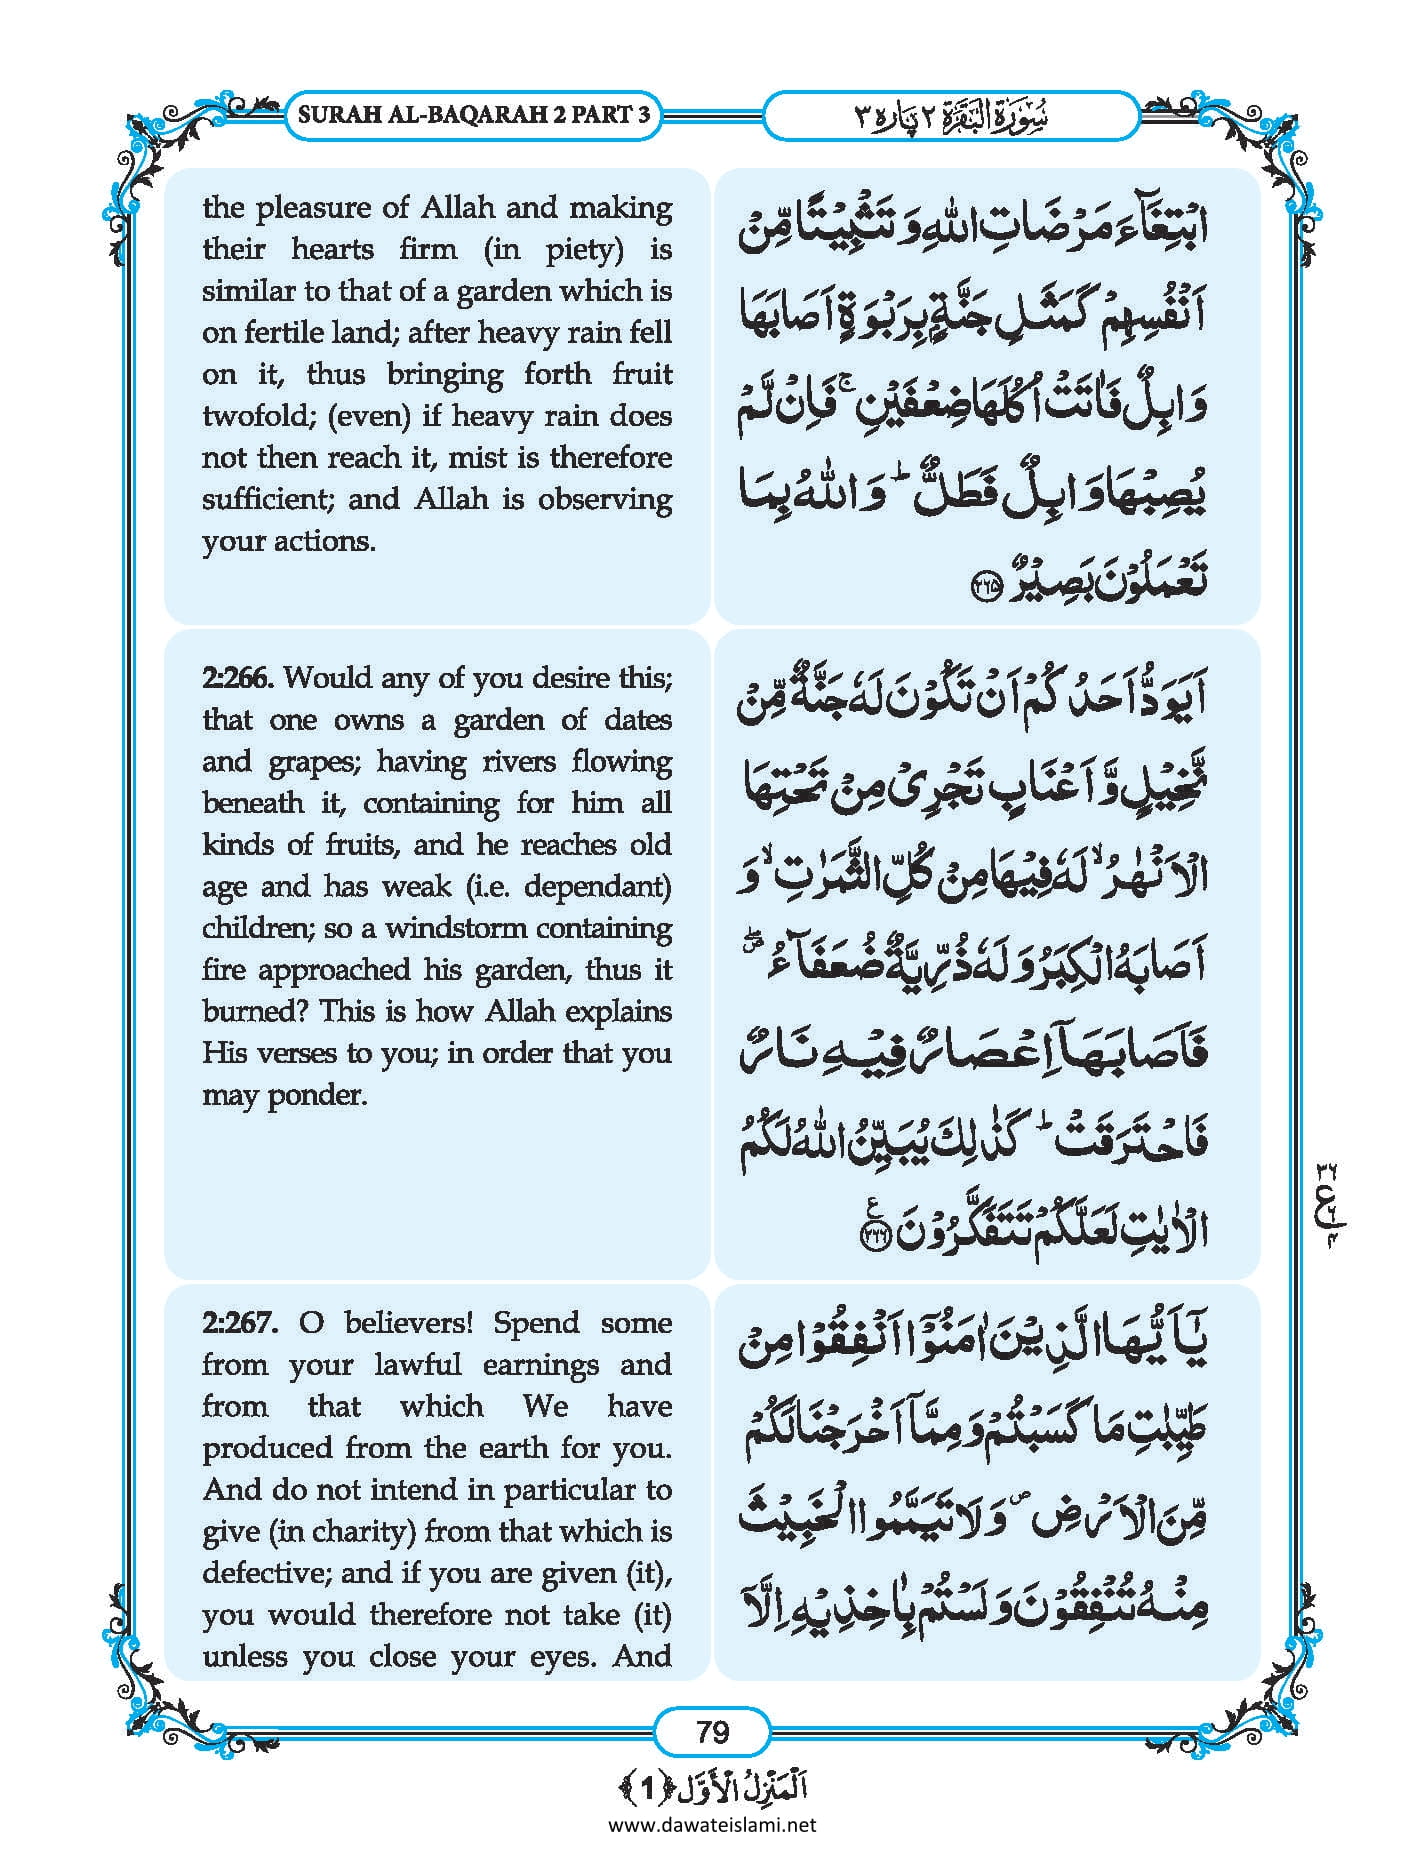 SURAH AL-BAQARAH 2 PART 3
سُوْرَةُ الْبَقَرَة ٢ پاره ٣
the pleasure of Allah and making
their hearts firm (in piety) is
similar to that of a garden which is
on fertile land; after heavy rain fell
on it, thus bringing forth fruit
twofold; (even) if heavy rain does
not then reach it, mist is therefore
sufficient; and Allah is observing
your actions.
ابْتِغَآءَ مَرْضَاتِ اللهِ وَ تَثْبِيْتًا مِّنْ
اَنْفُسِهِمْ كَمَثَلِ جَنَّةٍۭ بِرَبْوَةٍ اَصَابَهَا
وَابِلٌ فَاٰتَتْ اُكُلَهَا ضِعْفَيْنِ ۚ فَاِنْ لَّمْ
يُصِبْهَا وَابِلٌ فَطَلٌّ ؕ وَ اللهُ بِمَا
تَعْمَلُوْنَ بَصِيْرٌ ﴿۲۶۵﴾
2:266. Would any of you desire this;
that one owns a garden of dates
and grapes; having rivers flowing
beneath it, containing for him all
kinds of fruits, and he reaches old
age and has weak (i.e. dependant)
children; so a windstorm containing
fire approached his garden, thus it
burned? This is how Allah explains
His verses to you; in order that you
may ponder.
اَيَوَدُّ اَحَدُكُمْ اَنْ تَكُوْنَ لَهٗ جَنَّةٌ مِّنْ
نَّخِيْلٍ وَّ اَعْنَابٍ تَجْرِىْ مِنْ تَحْتِهَا
الْاَنْهٰرُ ۙ لَهٗ فِيْهَا مِنْ كُلِّ الثَّمَرٰتِ ۙ وَ
اَصَابَهُ الْكِبَرُ وَ لَهٗ ذُرِّيَّةٌ ضُعَفَآءُ ۖ
فَاَصَابَهَاۤ اِعْصَارٌ فِيْهِ نَارٌ
فَاحْتَرَقَتْ ؕ كَذٰلِكَ يُبَيِّنُ اللهُ لَكُمُ
الْاٰيٰتِ لَعَلَّكُمْ تَتَفَكَّرُوْنَ ﴿۲۶۶﴾ ع
2:267. O believers! Spend some
from your lawful earnings and
from that which We have
produced from the earth for you.
And do not intend in particular to
give (in charity) from that which is
defective; and if you are given (it),
you would therefore not take (it)
unless you close your eyes. And
يٰۤاَيُّهَا الَّذِيْنَ اٰمَنُوْۤا اَنْفِقُوْا مِنْ
طَيِّبٰتِ مَا كَسَبْتُمْ وَ مِمَّاۤ اَخْرَجْنَا لَكُمْ
مِّنَ الْاَرْضِ ۪ وَ لَا تَيَمَّمُوا الْخَبِيْثَ
مِنْهُ تُنْفِقُوْنَ وَ لَسْتُمْ بِاٰخِذِيْهِ اِلَّاۤ
٣٦
ع
79
اَلْمَنْزِلُ الْاَوَّل ﴿1﴾
www.dawateislami.net